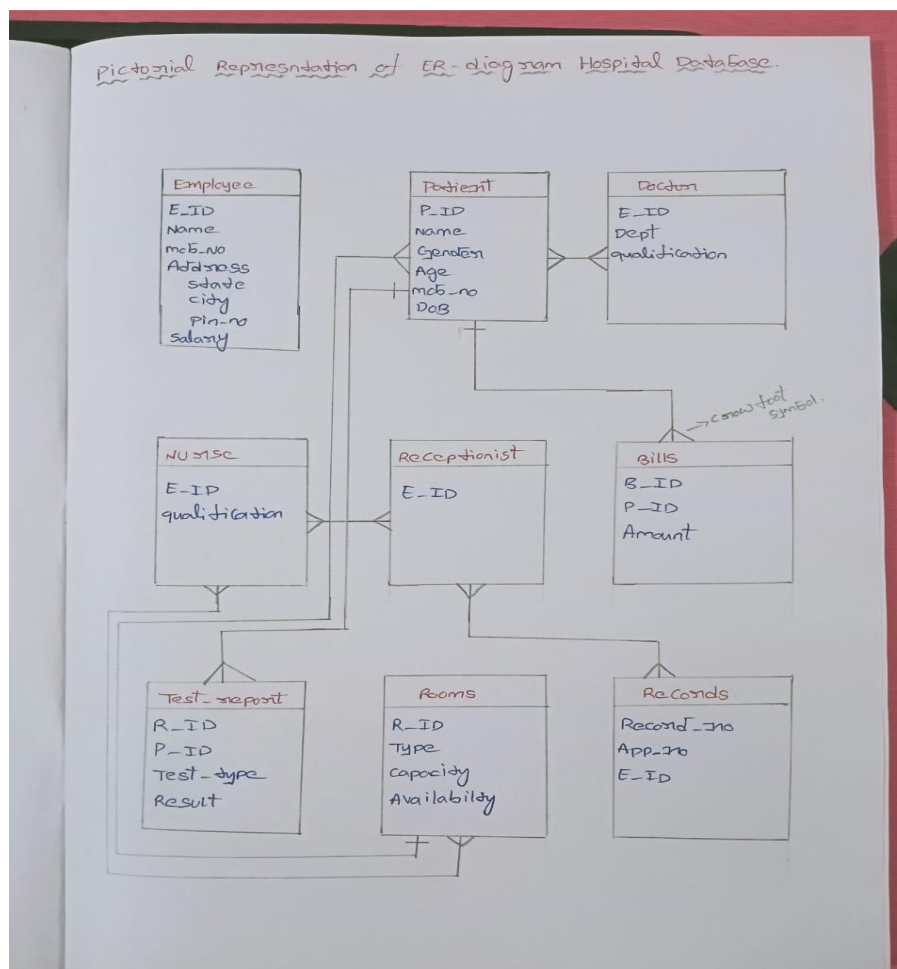 Pictorial Represntation of ER-diagram Hospital Database.
Employee
E_ID
Name
mob-No
Address
state
city
Pin-no
salary
Patient
P_ID
Name
Gender
Age
mob-no
DoB
Doctor
E_ID
Dept
qualification
Nurse
E-ID
qualification
Receptionist
E_ID
→ crow foot
symbol.
Bills
B_ID
P_ID
Amount
Test-report
R_ID
P_ID
Test-type
Result
Rooms
R_ID
Type
capacity
Availability
Records
Record-no
App-no
E_ID